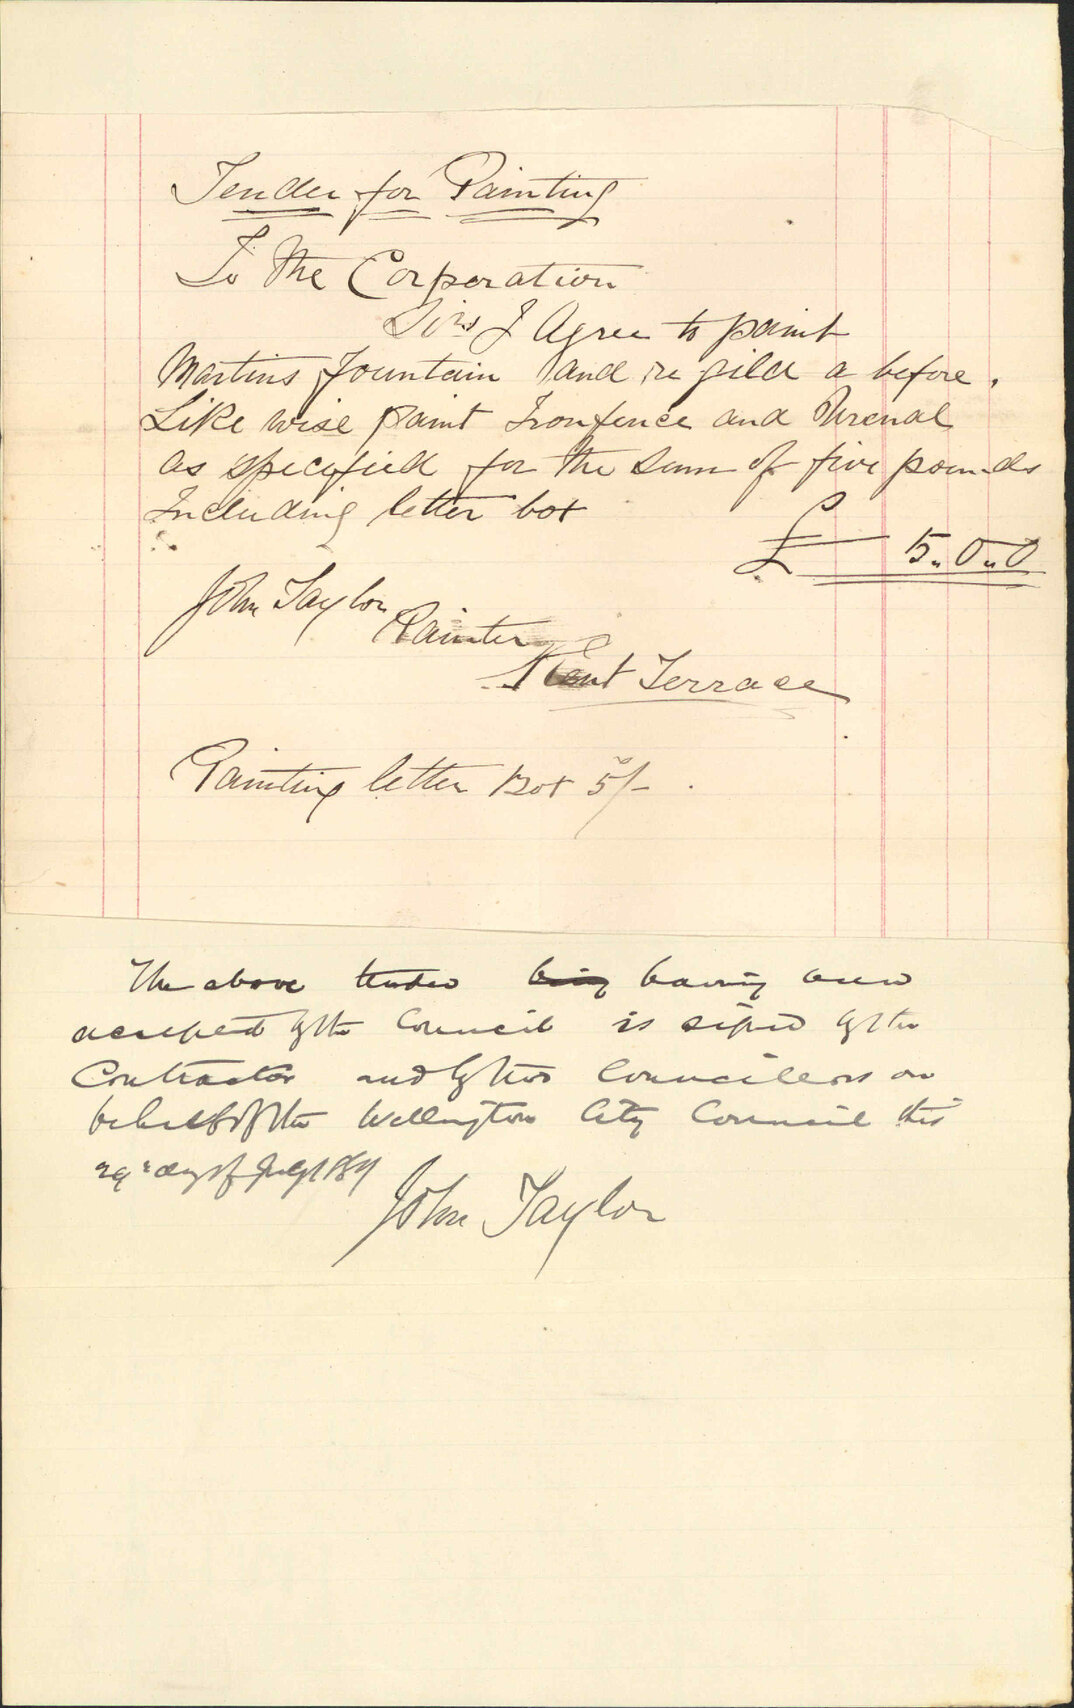 Tender for Painting
To the Corporation
Sirs I Agree to paint
Martins Fountain and re gild a before.
Like wise paint Ironfence and Urenal
as specified for the sum of five pounds
Including letter box
£ 5.0.0
John Taylor
Painter
Kent Terrace
Painting letter Box 5/-
The above tender being having been
accepted by the Council is signed by the
Contractor and by two Councillors on
behalf of the Wellington City Council this
29th day of July
John Taylor